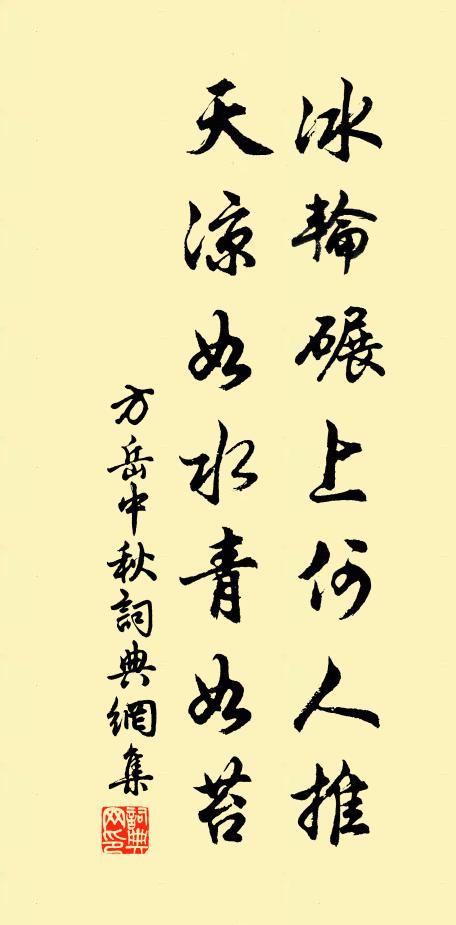 冰輪碾上何人推
天涼如水青如苔
方岳中秋詞典網集
詞典網印